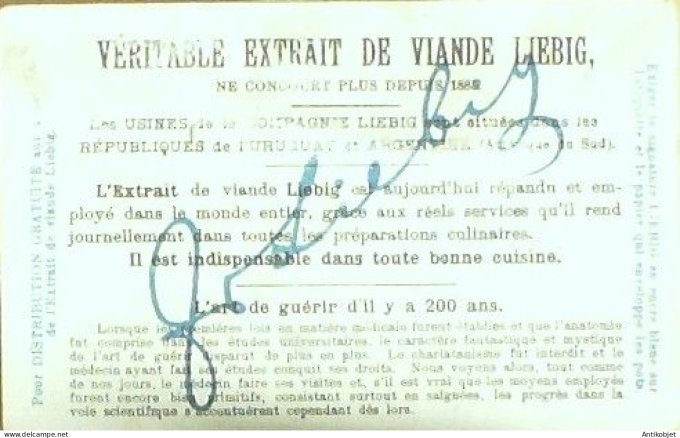 VÉRITABLE EXTRAIT DE VIANDE LIEBIG,
NE CONCOURT PLUS DEPUIS 1882
Les USINES de la COMPAGNIE LIEBIG sont situées dans les
RÉPUBLIQUES de l'URUGUAY et ARGENTINE (Amérique du Sud).
L'Extrait de viande Liebig est aujourd'hui répandu et em-
ployé dans le monde entier, grâce aux réels services qu'il rend
journellement dans toutes les préparations culinaires.
Il est indispensable dans toute bonne cuisine.
L'art de guérir d'il y a 200 ans.
Lorsque les premières lois en matière médicale furent établies et que l'anatomie
fut comprise dans les études universitaires, le caractère fantastique et mystique
de l'art de guérir disparut de plus en plus. Le charlatanisme fut interdit et le
médecin ayant fait ses études conquit ses droits. Nous voyons alors, tout comme
de nos jours, le médecin faire ses visites et, s'il est vrai que les moyens employés
furent encore bien primitifs, consistant surtout en saignées, les progrès dans la
voie scientifique s'accentuèrent cependant dès lors.
Pour DISTRIBUTION GRATUITE aux
de l'Extrait de viande Liebig.
Exiger la signature LIEBIG en encre bleue sur
l'étiquette et le papier qui enveloppe les pots
J v Liebig
Antikobjet